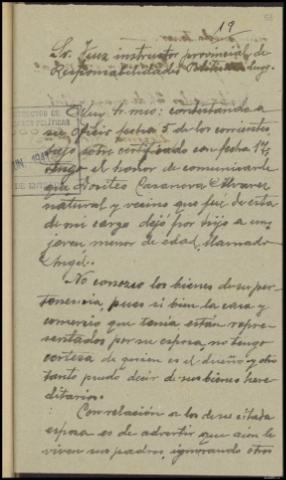 19
Sr. Juez instructor provincial de
Responsabilidades Políticas
Muy Sr. mio: contestando a
su oficio fecha 5 de los corrientes,
bajo sobre certificado con fecha 14,
tengo el honor de comunicarle
que Casanova Alvarez
natural y vecino que fué de esta
de mi cargo dejó por hijo a un
joven menor de edad, llamado
Angel.
No conozco los bienes de su per-
tenencia, pues si bien la casa y
comercio que tenía están repre-
sentados por su esposa, no tengo
certeza de quien es el dueño y otro
tanto puedo decir de sus bienes here-
ditarios.
Con relación a los de su citada
esposa es de advertir que aún le
viven sus padres, ignorando otros